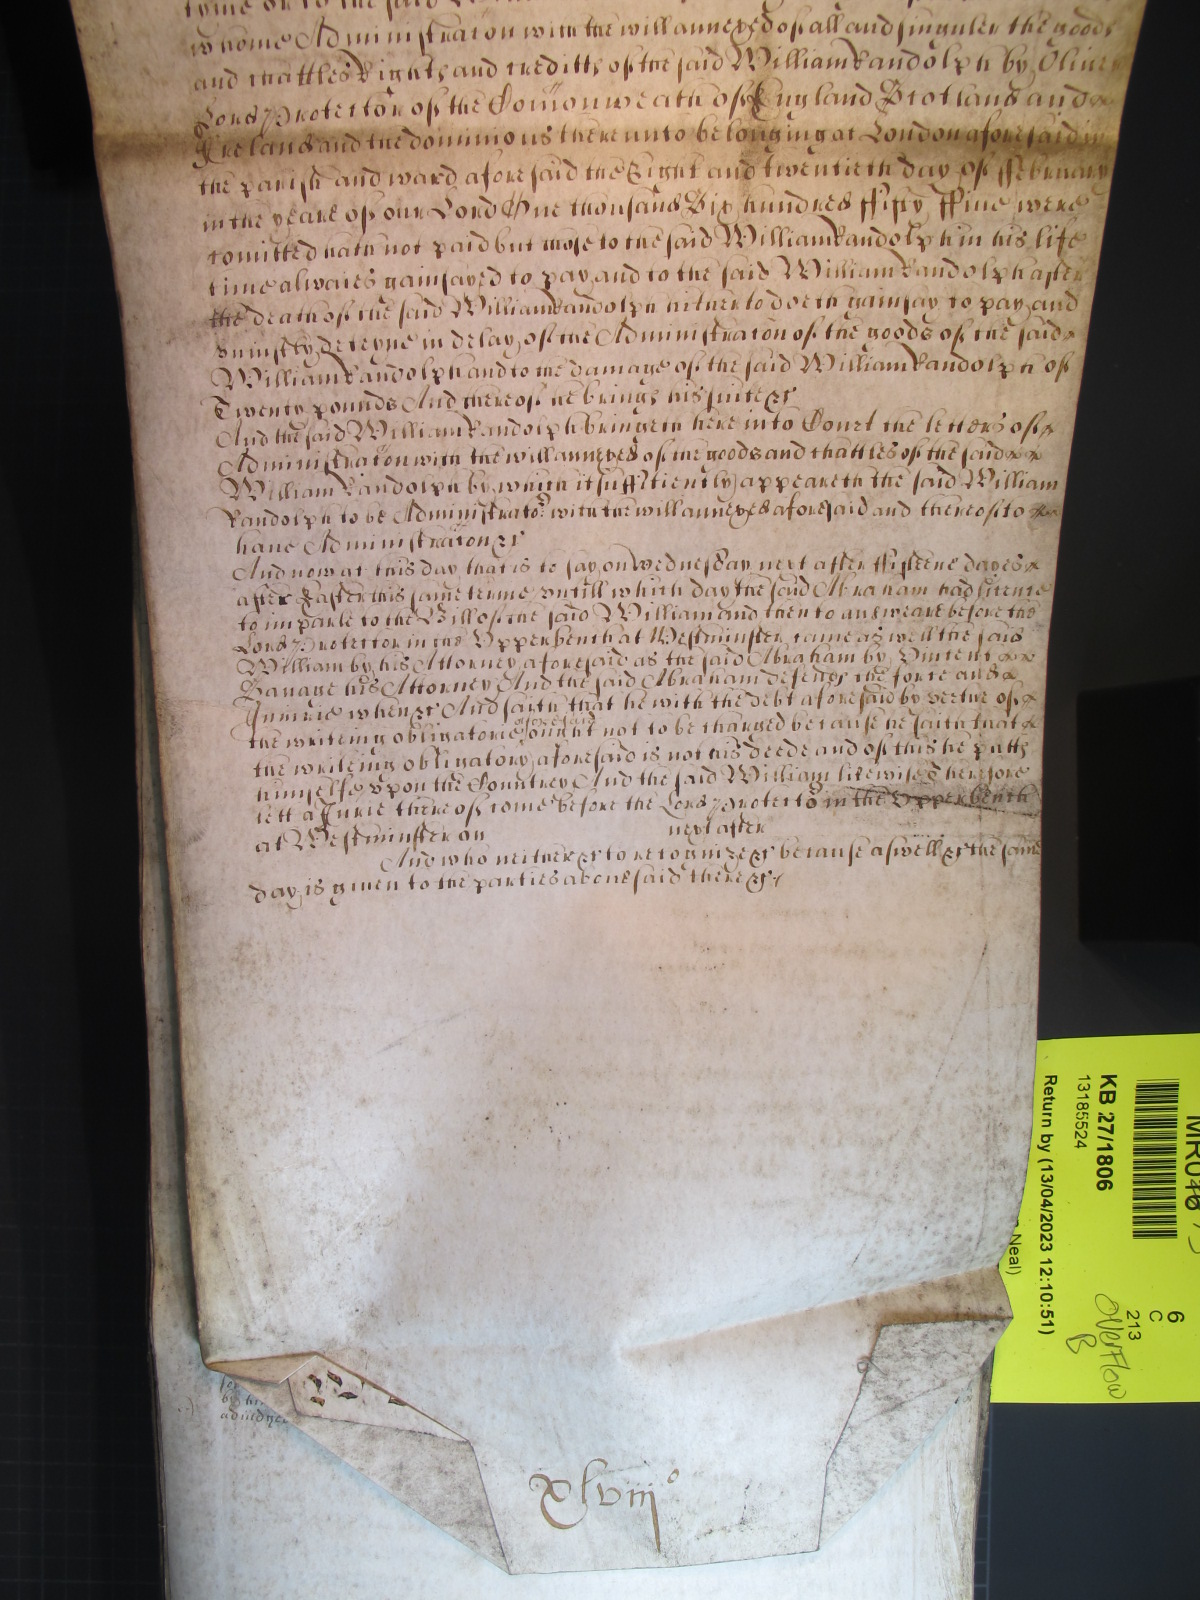 tyme or to the said
whome Administracon with the will annexed of all and singuler the goods
and chattles Rights and creditts of the said William Randolph by Oliver
Lord Protector of the Comonweath of England Scotland and
Ireland and the dominions thereunto belonging at London aforesaid in
the parish and ward aforesaid the Eight and twentieth day of ffebruary
in the yeare of our Lord One thousand Six hundred ffifty ffive were
comitted hath not paid but those to the said William Randolph in his life
time alwaies gainsayed to pay and to the said William Randolph after
the death of the said William Randolph hitherto doeth gainsay to pay and
uniustly deteyne in delay of the Administracon of the goods of the said
William Randolph and to the damage of the said William Randolph of
Twenty pounds And thereof he brings his suite &c
And the said William Randolph bringeth here into Court the letters of
Administracon with the will annexed of the goods and chattles of the said
William Randolph by which it sufficiently appeareth the said William
Randolph to be Administrator with the will annexed aforesaid and thereof to
have Administracon &c
And now at this day that is to say on Wednesday next after ffifteene dayes
after Easter this same terme untill which day the said Abraham had licence
to imparle to the Bill of the said William and then to answeare before the
Lord Protector in the Upper bench at Westminster came aswell the said
William by his Attorney aforesaid as the said Abraham by Vincent
Savage his Attorney And the said Abraham defends the force and
Iniurie when &c And saith that he with the debt aforesaid by vertue of
the writeing obligatorie aforesaid ought not to be charged because he saith that
the writeing obligatory aforesaid is not his deede and of this he putts
himselfe upon the Countrey And the said William likewise Therefore
lett a Jurie thereof come before the Lord Protector in the Upper bench
at Westminster on next after
And who neither &c to recognize &c because aswell &c the same
day is given to the parties abovesaid there &c
xlviij o
by
KB 27/1806
13185524
Return by (13/04/2023 12:10:51)
Neal)
6
C
213
Overflow
B